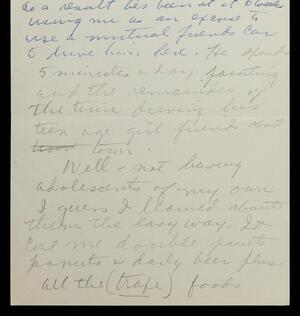 as a result has been at it 6 weeks
using me as an excuse to
use a mutual friends car
to drive him here. He spends
5 minutes a day painting
and the remainder of
the time driving his
teen age girl friends about
town.
Well - not having
adolescents of my own
I guess I learned about
them the easy way. It
cost me double paints
peanuts & daily beer plus
all the (trape) foods